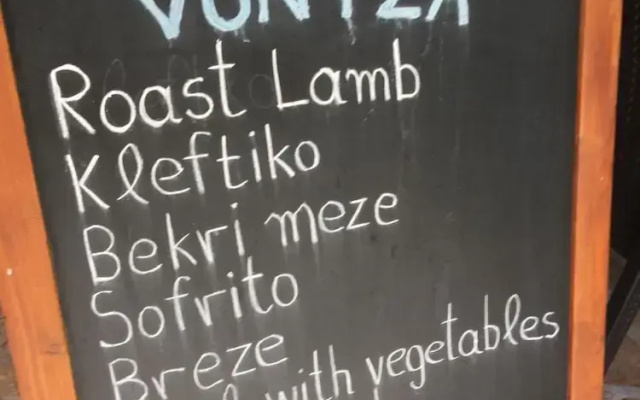 Roast Lamb
Kleftiko
Bekri meze
Sofrito
Breze
with vegetables